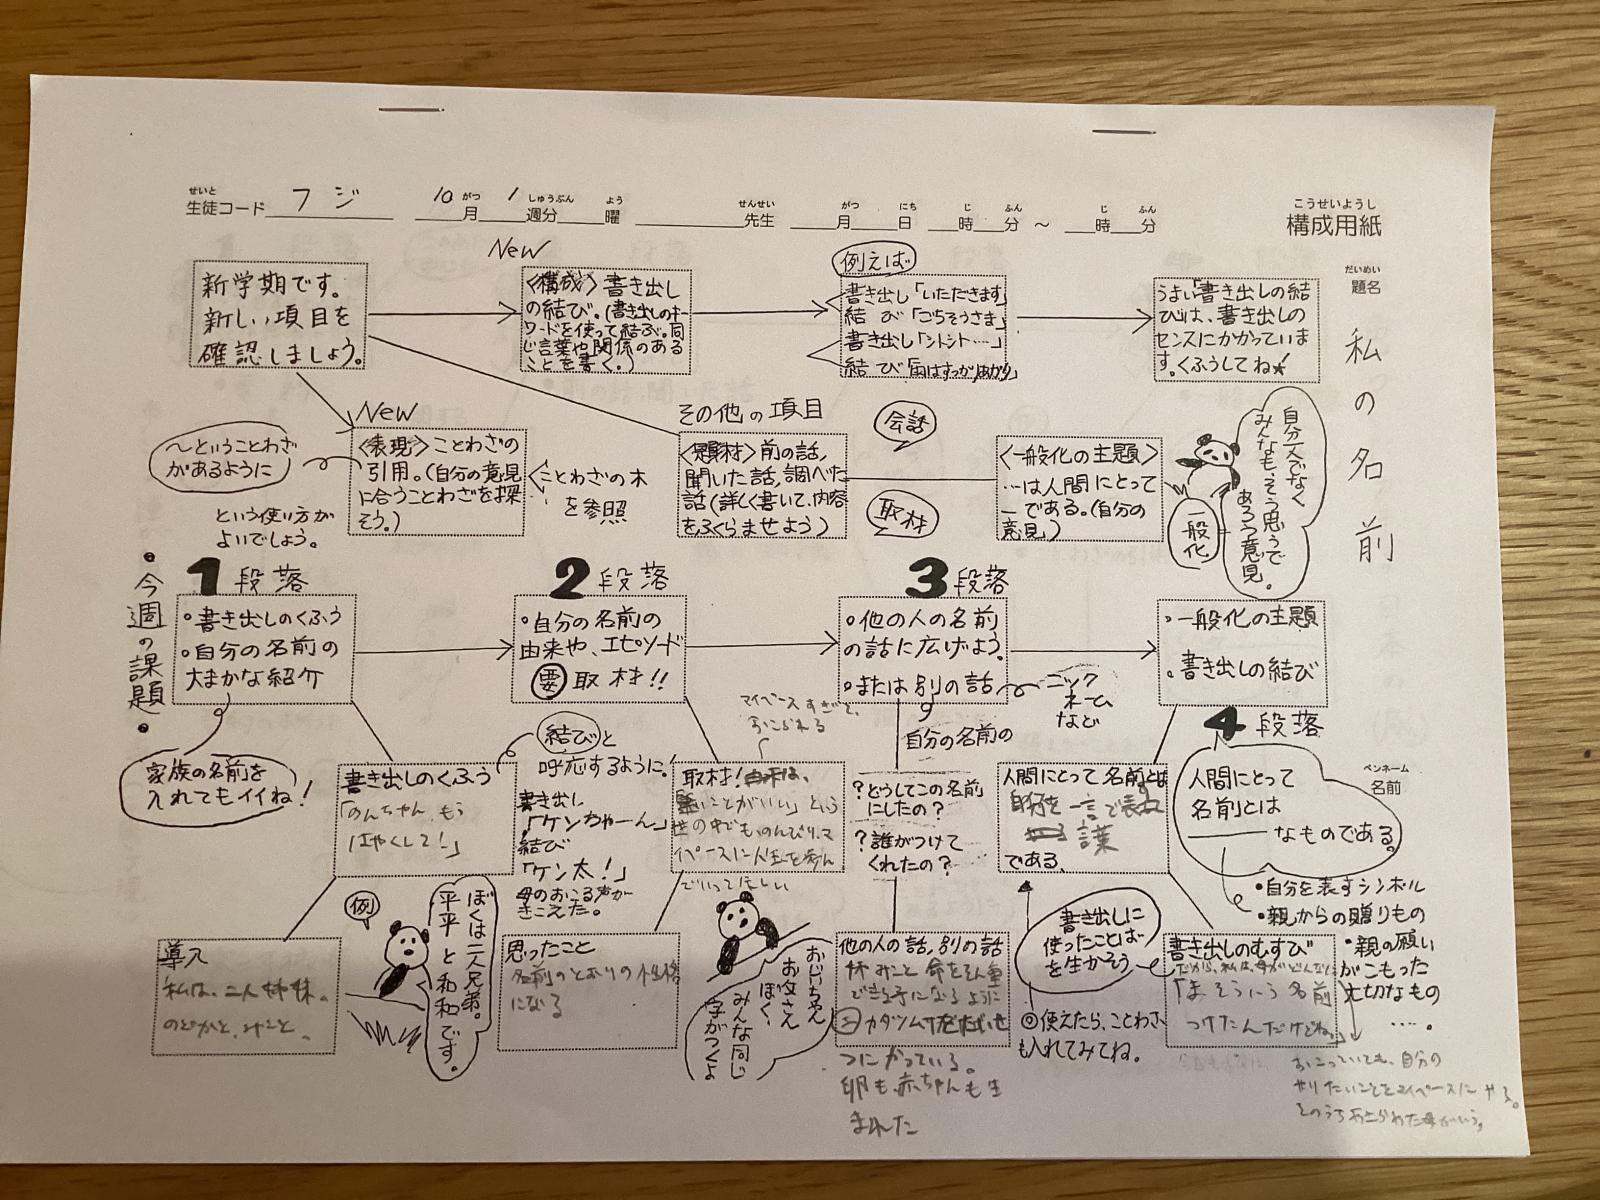 せいと
生徒コード フジ
10月 1週分 曜
がつ しゅうぶん よう
せんせい
先生
がつ にち じ ふん じ ふん
月 日 時 分 ～ 時 分
こうせいようし
構成用紙
だいめい
題名
私の名前
新学期です。
新しい項目を
確認しましょう。
New
〈構成〉書き出し
の結び。(書き出しのキー
ワードを使って結ぶ。同
じ言葉や関係のある
ことを書く。)
例えば
書き出し「いただきます」
結び「ごちそうさま」
書き出し「シトシト…」
結び「雨はすっかりあがり」
うまい書き出しの結
びは、書き出しの
センスにかかっていま
す。くふうしてね★
～ということわざ
があるように
という使い方が
よいでしょう。
New
〈表現〉ことわざの
引用。(自分の意見
に合うことわざを探
そう。)
ことわざの木
を参照
その他の項目
〈題材〉前の話,
聞いた話,調べた
話(詳しく書いて、内容
をふくらませよう)
会話
取材
〈一般化の主題〉
…は人間にとって
―である。(自分の
意見)
一般化
自分一人でなく
みんなも、そう思うで
あろう意見。
・今週の課題・
1段落
・書き出しのくふう
・自分の名前の
大まかな紹介
家族の名前を
入れてもイイね!
2段落
・自分の名前の
由来や、エピソード
要 取材!!
3段落
・他の人の名前
の話に広げよう。
・または別の話
ニック
ネーム
など
自分の名前の
・一般化の主題
・書き出しの結び
4段落
書き出しのくふう
「のんちゃん、もう
はやくして!」
結びと
呼応するように。
書き出し
「ケンちゃーん」
結び
「ケン太!」
母のおこる声が
きこえた。
マイペースすぎて、
おこられる
取材!
ことがいい」という
世の中でも、のんびり、マ
イペースに人生を歩ん
でいってほしい
?どうしてこの名前
にしたの?
?誰がつけて
くれたの?
人間にとって名前とは
自分を一言で表す
言葉
である。
人間にとって
名前とは
なものである。
ペンネーム
名前
・自分を表すシンボル
・親からの贈りもの
・親の願い
がこもった
大切なもの
….。
導入
私は、二人姉妹。
のどかと、みこと。
例
ぼくは二人兄弟。
平平と和和です。
思ったこと
名前のとおりの性格
になる
おじいちゃん
お父さん
ぼく、
みんな同じ
字がつくよ
他の人の話,別の話
妹みこと 命をそん重
できる子になるように
つながっている。
卵も、赤ちゃんも生
まれた
書き出しに
使ったことば
を生かそう
◎使えたら、ことわざ
も入れてみてね。
書き出しのむすび
だから、私は、母がどんなに
名前
つけたんだけどね。」
おこっていても、自分の
やりたいことをマイペースにやる。